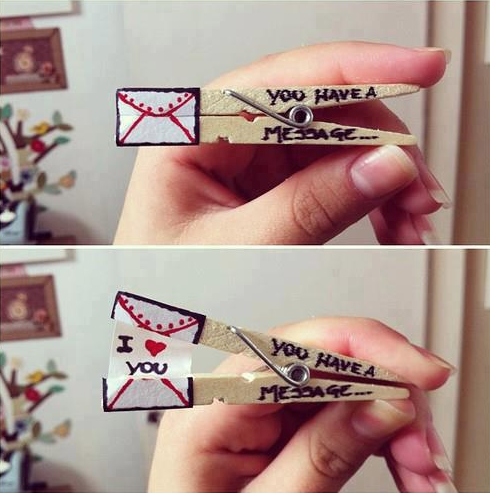 YOU HAVE A
MESSAGE...
I ♥
YOU
YOU HAVE A
MESSAGE...